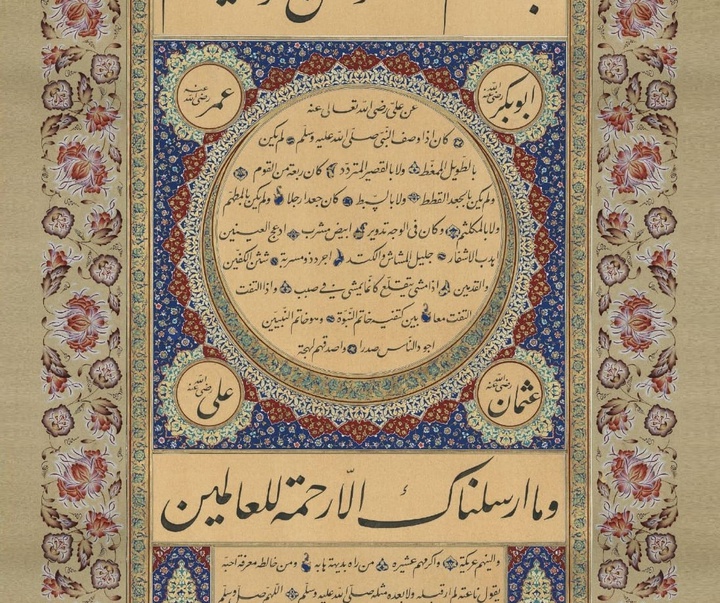 ابو بكر رضى الله عنه
عمر رضى الله عنه
عن على رضى الله تعالى عنه
كان اذا وصف النبى صلى الله عليه وسلم لم يكن
بالطويل الممغط ولا بالقصير المتردد كان ربعة من القوم
ولم يكن بالجعد القطط ولا بالسبط كان جعدا رجلا ولم يكن بالمطهم
ولا بالمكلثم وكان فى الوجه تدوير ابيض مشرب ادعج العينين
اهدب الاشفار جليل المشاش والكتد اجرد ذو مسربة شثن الكفين
والقدمين اذا مشى يتقلع كانما يمشى فى صبب واذا التفت
التفت معا بين كتفيه خاتم النبوة وهو خاتم النبيين
اجود الناس صدرا واصدقهم لهجة
عثمان رضى الله عنه
على رضى الله عنه
وما ارسلناك الّا رحمة للعالمين
والينهم عريكة واكرمهم عشيرة من راه بديهة هابه ومن خالطه معرفة احبه
يقول ناعته لم ار قبله ولا بعده مثله صلى الله عليه وسلم اللهم صل وسلم